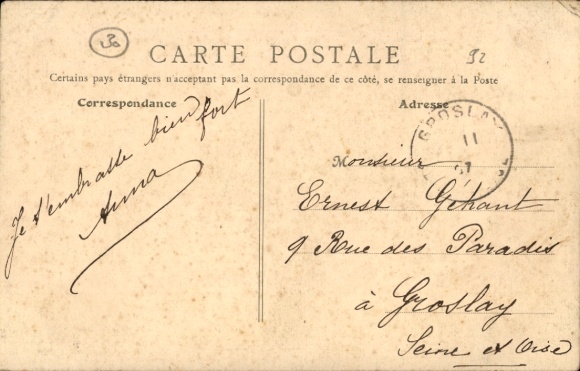 30
CARTE POSTALE
92
Certains pays étrangers n'acceptant pas la correspondance de ce côté, se renseigner à la Poste
Correspondance
Je t'embrasse bien fort
Anna
Adresse
GROSLAY
11
07
Monsieur
Ernest Géhant
9 Rue des Paradis
à Groslay
Seine et Oise